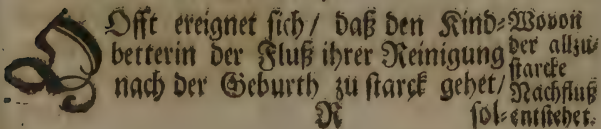 Offt ereignet sich / daß den Kind-
betterin der Fluß ihrer Reinigung
nach der Geburth zu starck gehet /
R
sol-
Wovon
der allzu-
starcke
Nachfluß
entstehet.